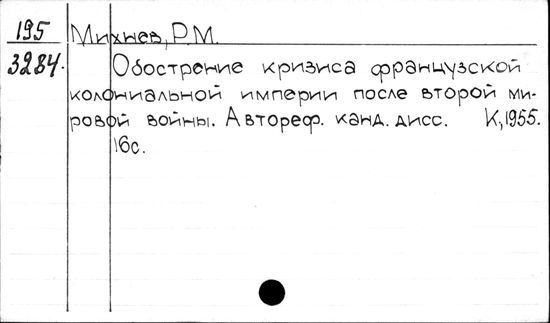 195 Михнев, Р.М.
3284. Обострение кризиса французской
колониальной империи после второй ми-
ровой войны. Автореф. канд. дисс. К, 1955.
16с.